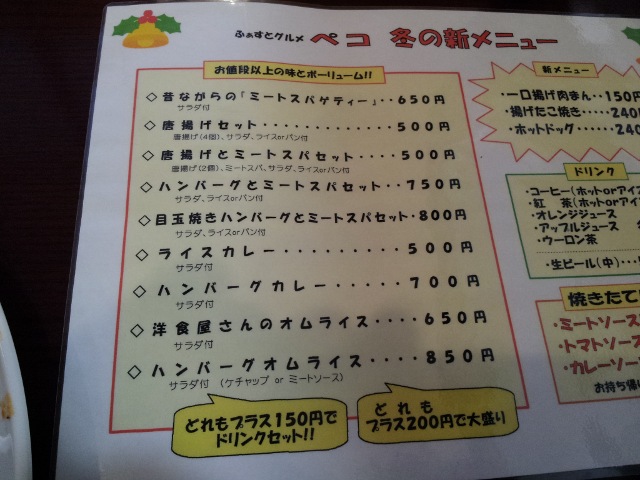 ふぁすとグルメ ペコ 冬の新メニュー
お値段以上の味とボーリューム!!
◇昔ながらの「ミートスパゲティー」・・650円
サラダ付
◇唐揚げセット・・・・・・・・・・・・・500円
唐揚げ(4個)、サラダ、ライスorパン付
◇唐揚げとミートスパセット・・・・500円
唐揚げ(2個)、ミートスパ、サラダ、ライスorパン付
◇ハンバーグとミートスパセット・・750円
サラダ、ライスorパン付
◇目玉焼きハンバーグとミートスパセット・800円
サラダ、ライスorパン付
◇ライスカレー・・・・・・・・・・500円
サラダ付
◇ハンバーグカレー・・・・・・・700円
サラダ付
◇洋食屋さんのオムライス・・・・650円
サラダ付
◇ハンバーグオムライス・・・・850円
サラダ付 (ケチャップ or ミートソース)
どれもプラス150円で
ドリンクセット!!
どれも
プラス200円で大盛り
新メニュー
・一口揚げ肉まん・・150円
・揚げたこ焼き・・・・240
・ホットドッグ・・・・・240
ドリンク
・コーヒー(ホットorアイ
・紅 茶(ホットorアイ
・オレンジジュース
・アップルジュース
・ウーロン茶
・生ビール(中)・・・
焼きたて
・ミートソース
・トマトソース
・カレーソース
お持ち帰り